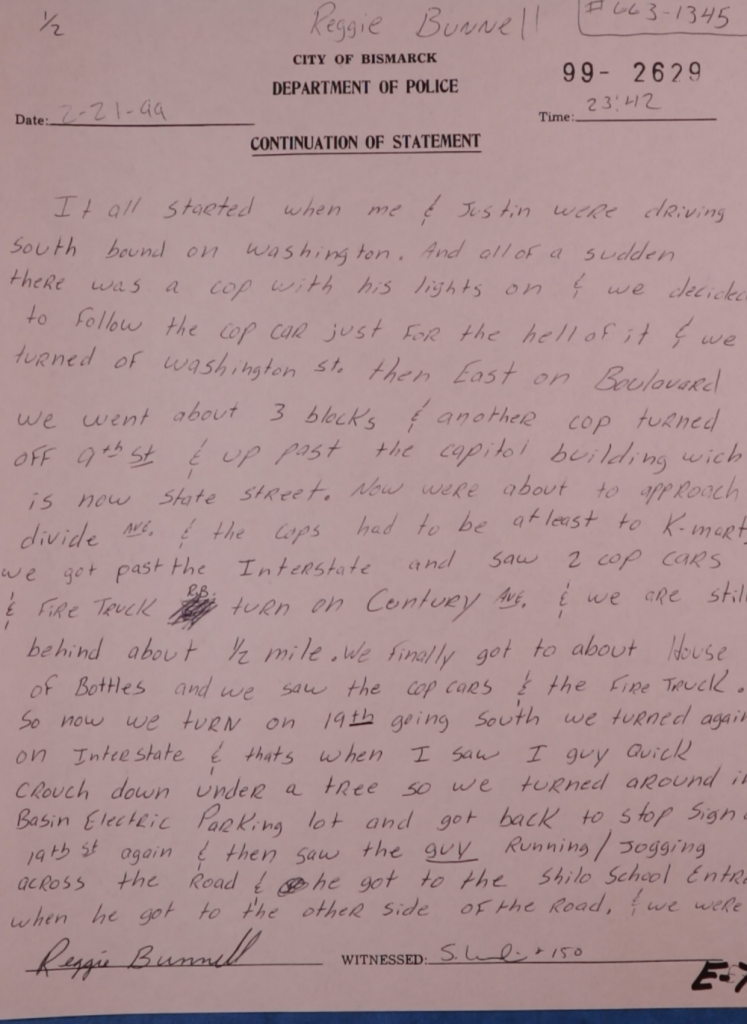 1/2
Reggie Bunnell
#663-1345
CITY OF BISMARCK
DEPARTMENT OF POLICE
99- 2629
Date: 2-21-99
Time: 23:42
CONTINUATION OF STATEMENT
It all started when me & Justin were driving
south bound on washington. And all of a sudden
there was a cop with his lights on & we decided
to follow the cop car just for the hell of it & we
turned of washington st. then East on Boulavard
we went about 3 blocks & another cop turned
off 9th st & up past the capitol building wich
is now state street. Now were about to approach
divide AVE. & the cops had to be atleast to K-mart,
we got past the Interstate and saw 2 cop cars
& Fire Truck R.B. turn on Century Ave. & we are still
behind about 1/2 mile. We finally got to about House
of Bottles and we saw the cop cars & the Fire Truck.
So now we turn on 19th going south we turned again
on Interstate & thats when I saw I guy Quick
crouch down under a tree so we turned around in
Basin Electric Parking lot and got back to stop sign
19th st again & then saw the guy Running/Jogging
across the Road & he got to the Shilo School Entr
when he got to the other side of the Road, & we were
Reggie Bunnell
WITNESSED: 150
E-7